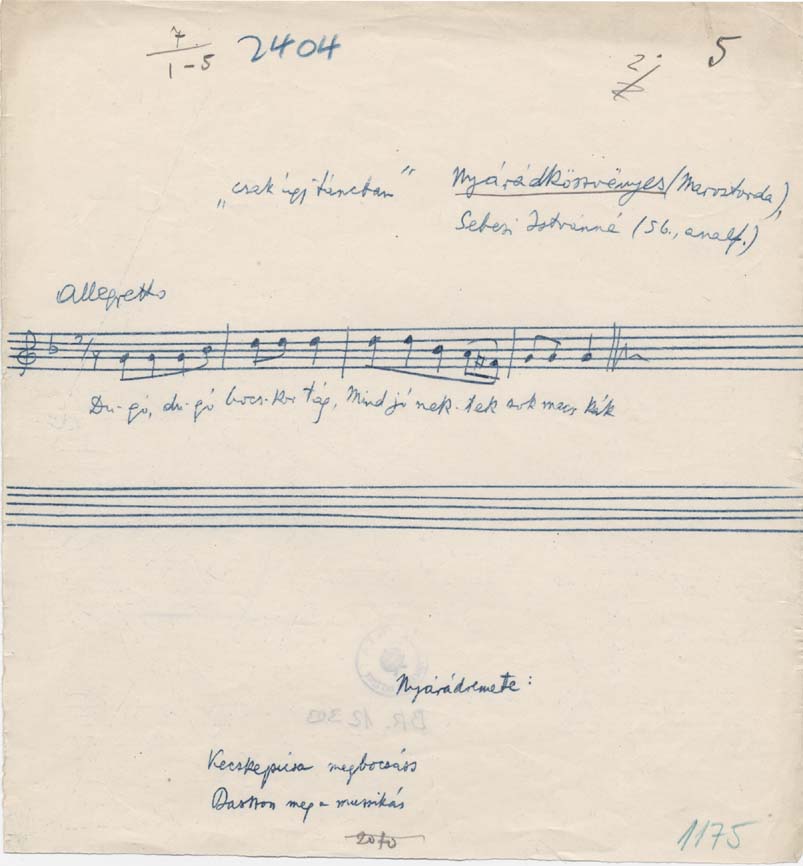 7 2404 2. 5
1-5
„csak így táncban” Nyárádköszvényes (Marostorda),
Sebesi Istvánné (56., analf.)
Allegretto
2/4
Du-gó, du-gó bocs-kor tág, Mind jó nek-tek sok macs kák
Nyárádremete:
BR. 12303
Kecskepicsa megbocsáss
Basszon meg a muzsikás
2070
1175